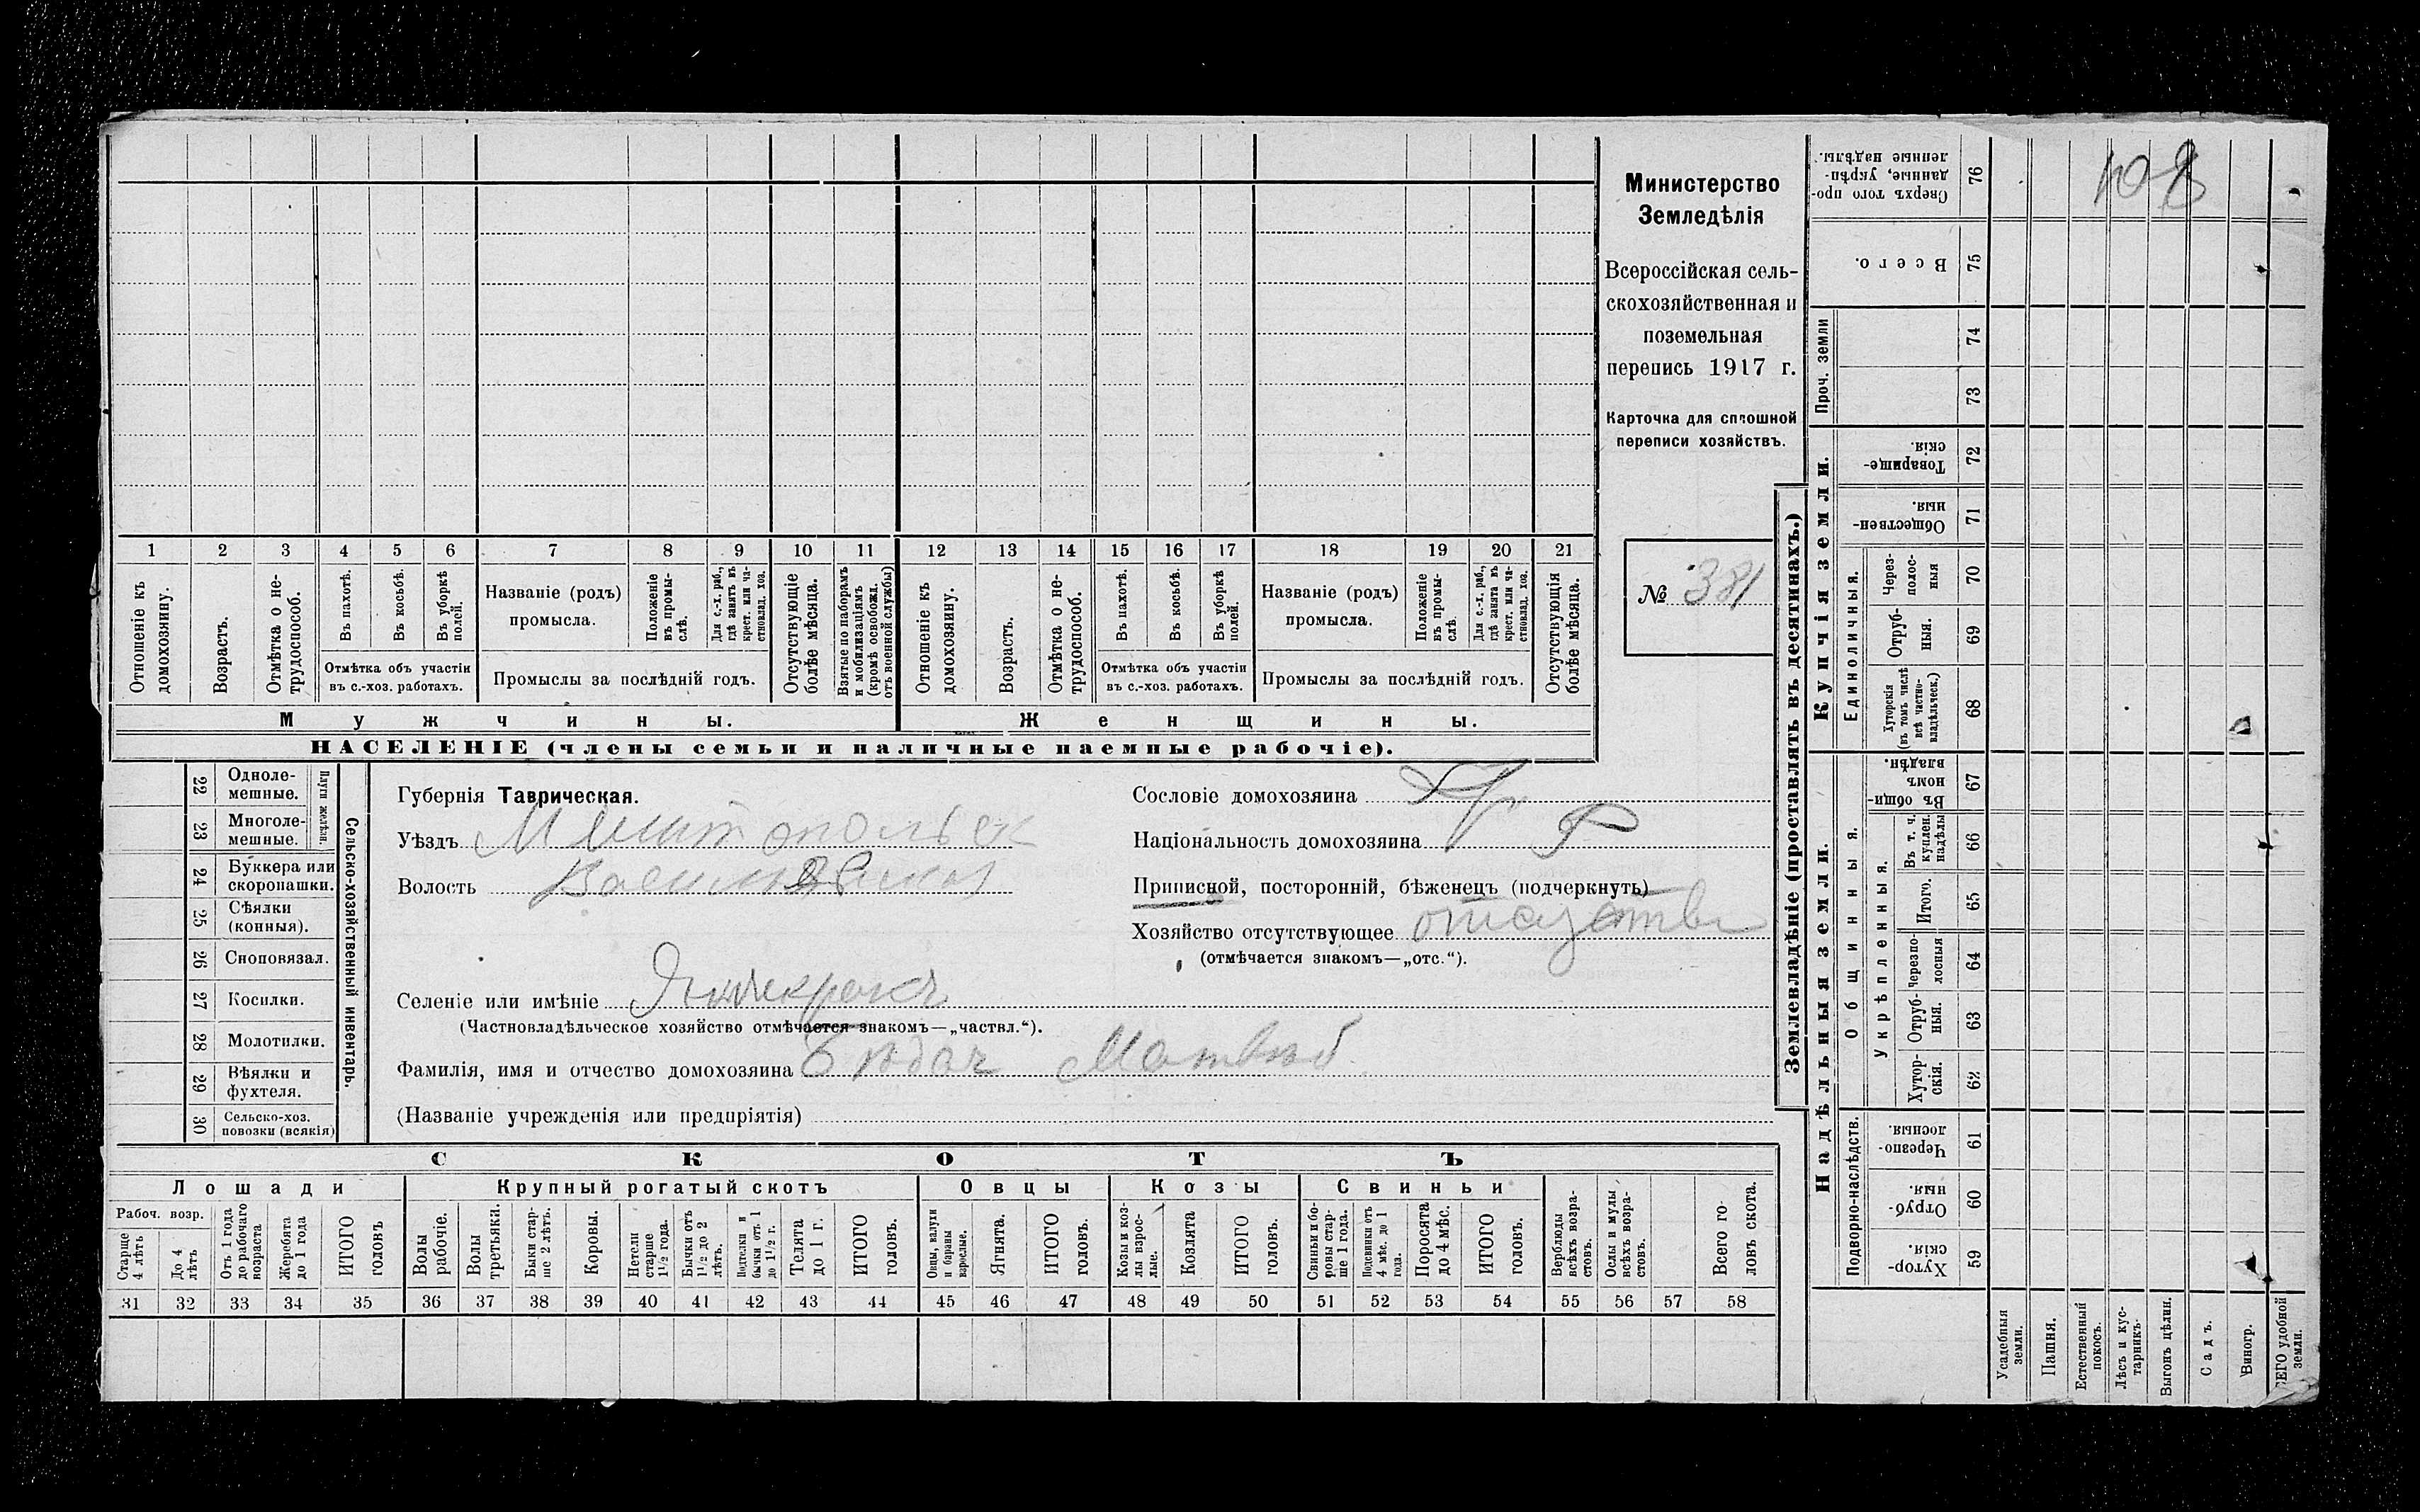 Министерство
Земледѣлія
Всероссійская сель-
скохозяйственная и
поземельная
перепись 1917 г.
Карточка для сплошной
переписи хозяйствъ.
№ 381
108
1 2 3 4 5 6 7 8 9 10 11 12 13 14 15 16 17 18 19 20 21
Отношеніе къ домохозяину.
Возрастъ.
Отмѣтка о не-трудоспособ.
Въ пахотѣ.
Въ косьбѣ.
Въ уборкѣ полей.
Отмѣтка объ участіи
въ с.-хоз. работахъ.
Названіе (родъ)
промысла.
Положеніе въ промы-слѣ.
Для с.-х. раб., гдѣ занятъ въ крест. или ча-стновлад. хоз.
Промыслы за послѣдній годъ.
Отсутствующіе болѣе мѣсяца.
Взятые по наборамъ и мобилизаціямъ (кромѣ освобожд. отъ военной службы)
Отношеніе къ домохозяину.
Возрастъ.
Отмѣтка о не-трудоспособ.
Въ пахотѣ.
Въ косьбѣ.
Въ уборкѣ полей.
Отмѣтка объ участіи
въ с.-хоз. работахъ.
Названіе (родъ)
промысла.
Положеніе въ промы-слѣ.
Для с.-х. раб., гдѣ занята въ крест. или ча-стновлад. хоз.
Промыслы за послѣдній годъ.
Отсутствующія болѣе мѣсяца.
Мужчины.
Женщины.
НАСЕЛЕНІЕ (члены семьи и наличные наемные рабочіе).
22 Одноле-мешные.
23 Многоле-мешные.
Плуги желѣзн.
24 Буккера или скоропашки.
25 Сѣялки (конныя).
26 Сноповязал.
27 Косилки.
28 Молотилки.
29 Вѣялки и фухтеля.
30 Сельско-хоз. повозки (всякія)
Сельско-хозяйственный инвентарь.
Губернія Таврическая.
Уѣздъ Мелитопольск
Волость
Сословіе домохозяина
Національность домохозяина Р
Приписной, посторонній, бѣженецъ (подчеркнуть)
Хозяйство отсутствующее
(отмѣчается знакомъ—„отс.“).
Селеніе или имѣніе
(Частновладѣльческое хозяйство отмѣчается знакомъ—„частвл.“).
Фамилія, имя и отчество домохозяина Матвѣй
(Названіе учрежденія или предпріятія)
СКОТЪ
Лошади
Крупный рогатый скотъ
Овцы
Козы
Свиньи
Рабоч. возр.
Старше 4 лѣтъ
До 4 лѣтъ
Отъ 1 года до рабочаго возраста
Жеребята до 1 года
ИТОГО головъ
Волы рабочіе.
Волы третьяки.
Быки стар-ше 2 лѣтъ.
Коровы.
Нетели старше 1½ года.
Бычки отъ 1½ до 2 лѣтъ.
Подтелки и бычки отъ 1 до 1½ г.
Телята до 1 г.
ИТОГО головъ.
Овцы, валухи и бараны взрослые.
Ягнята.
ИТОГО головъ.
Козы и коз-лы взрос-лые.
Козлята
ИТОГО головъ.
Свиньи и бо-ровы стар-ше 1 года.
Подсвинки отъ 4 мѣс. до 1 года.
Поросята до 4 мѣс.
ИТОГО головъ.
Верблюды всѣхъ возра-стовъ.
Ослы и мулы всѣхъ возра-стовъ.
Всего го-ловъ скота.
31 32 33 34 35 36 37 38 39 40 41 42 43 44 45 46 47 48 49 50 51 52 53 54 55 56 57 58
Землевладѣніе (проставлять въ десятинахъ.)
Купчія земли.
Надѣльныя земли.
Сверхъ того про-данные, укрѣп-ленные надѣлы. 76
Всего. 75
Проч. земли 74
73
Товарище-скія. 72
Обществен-ныя. 71
Единоличныя.
Через-полос-ныя 70
Отруб-ныя. 69
Хуторскія (въ томъ числѣ всѣ частно-владѣльческ.) 68
Общинныя.
Въ общин-номъ владѣн. 67
Укрѣпленныя.
Въ т. ч. куплен. надѣлы 66
Итого. 65
Черезпо-лосныя 64
Отруб-ныя. 63
Хутор-скія. 62
Подворно-наслѣдств.
Черезпо-лосныя. 61
Отруб-ныя. 60
Хутор-скія. 59
Усадебныя земли.
Пашня.
Естественный покосъ.
Лѣсъ и кус-тарникъ.
Выгонъ цѣлин.
Садъ.
Виногр.
ВСЕГО удобной земли.